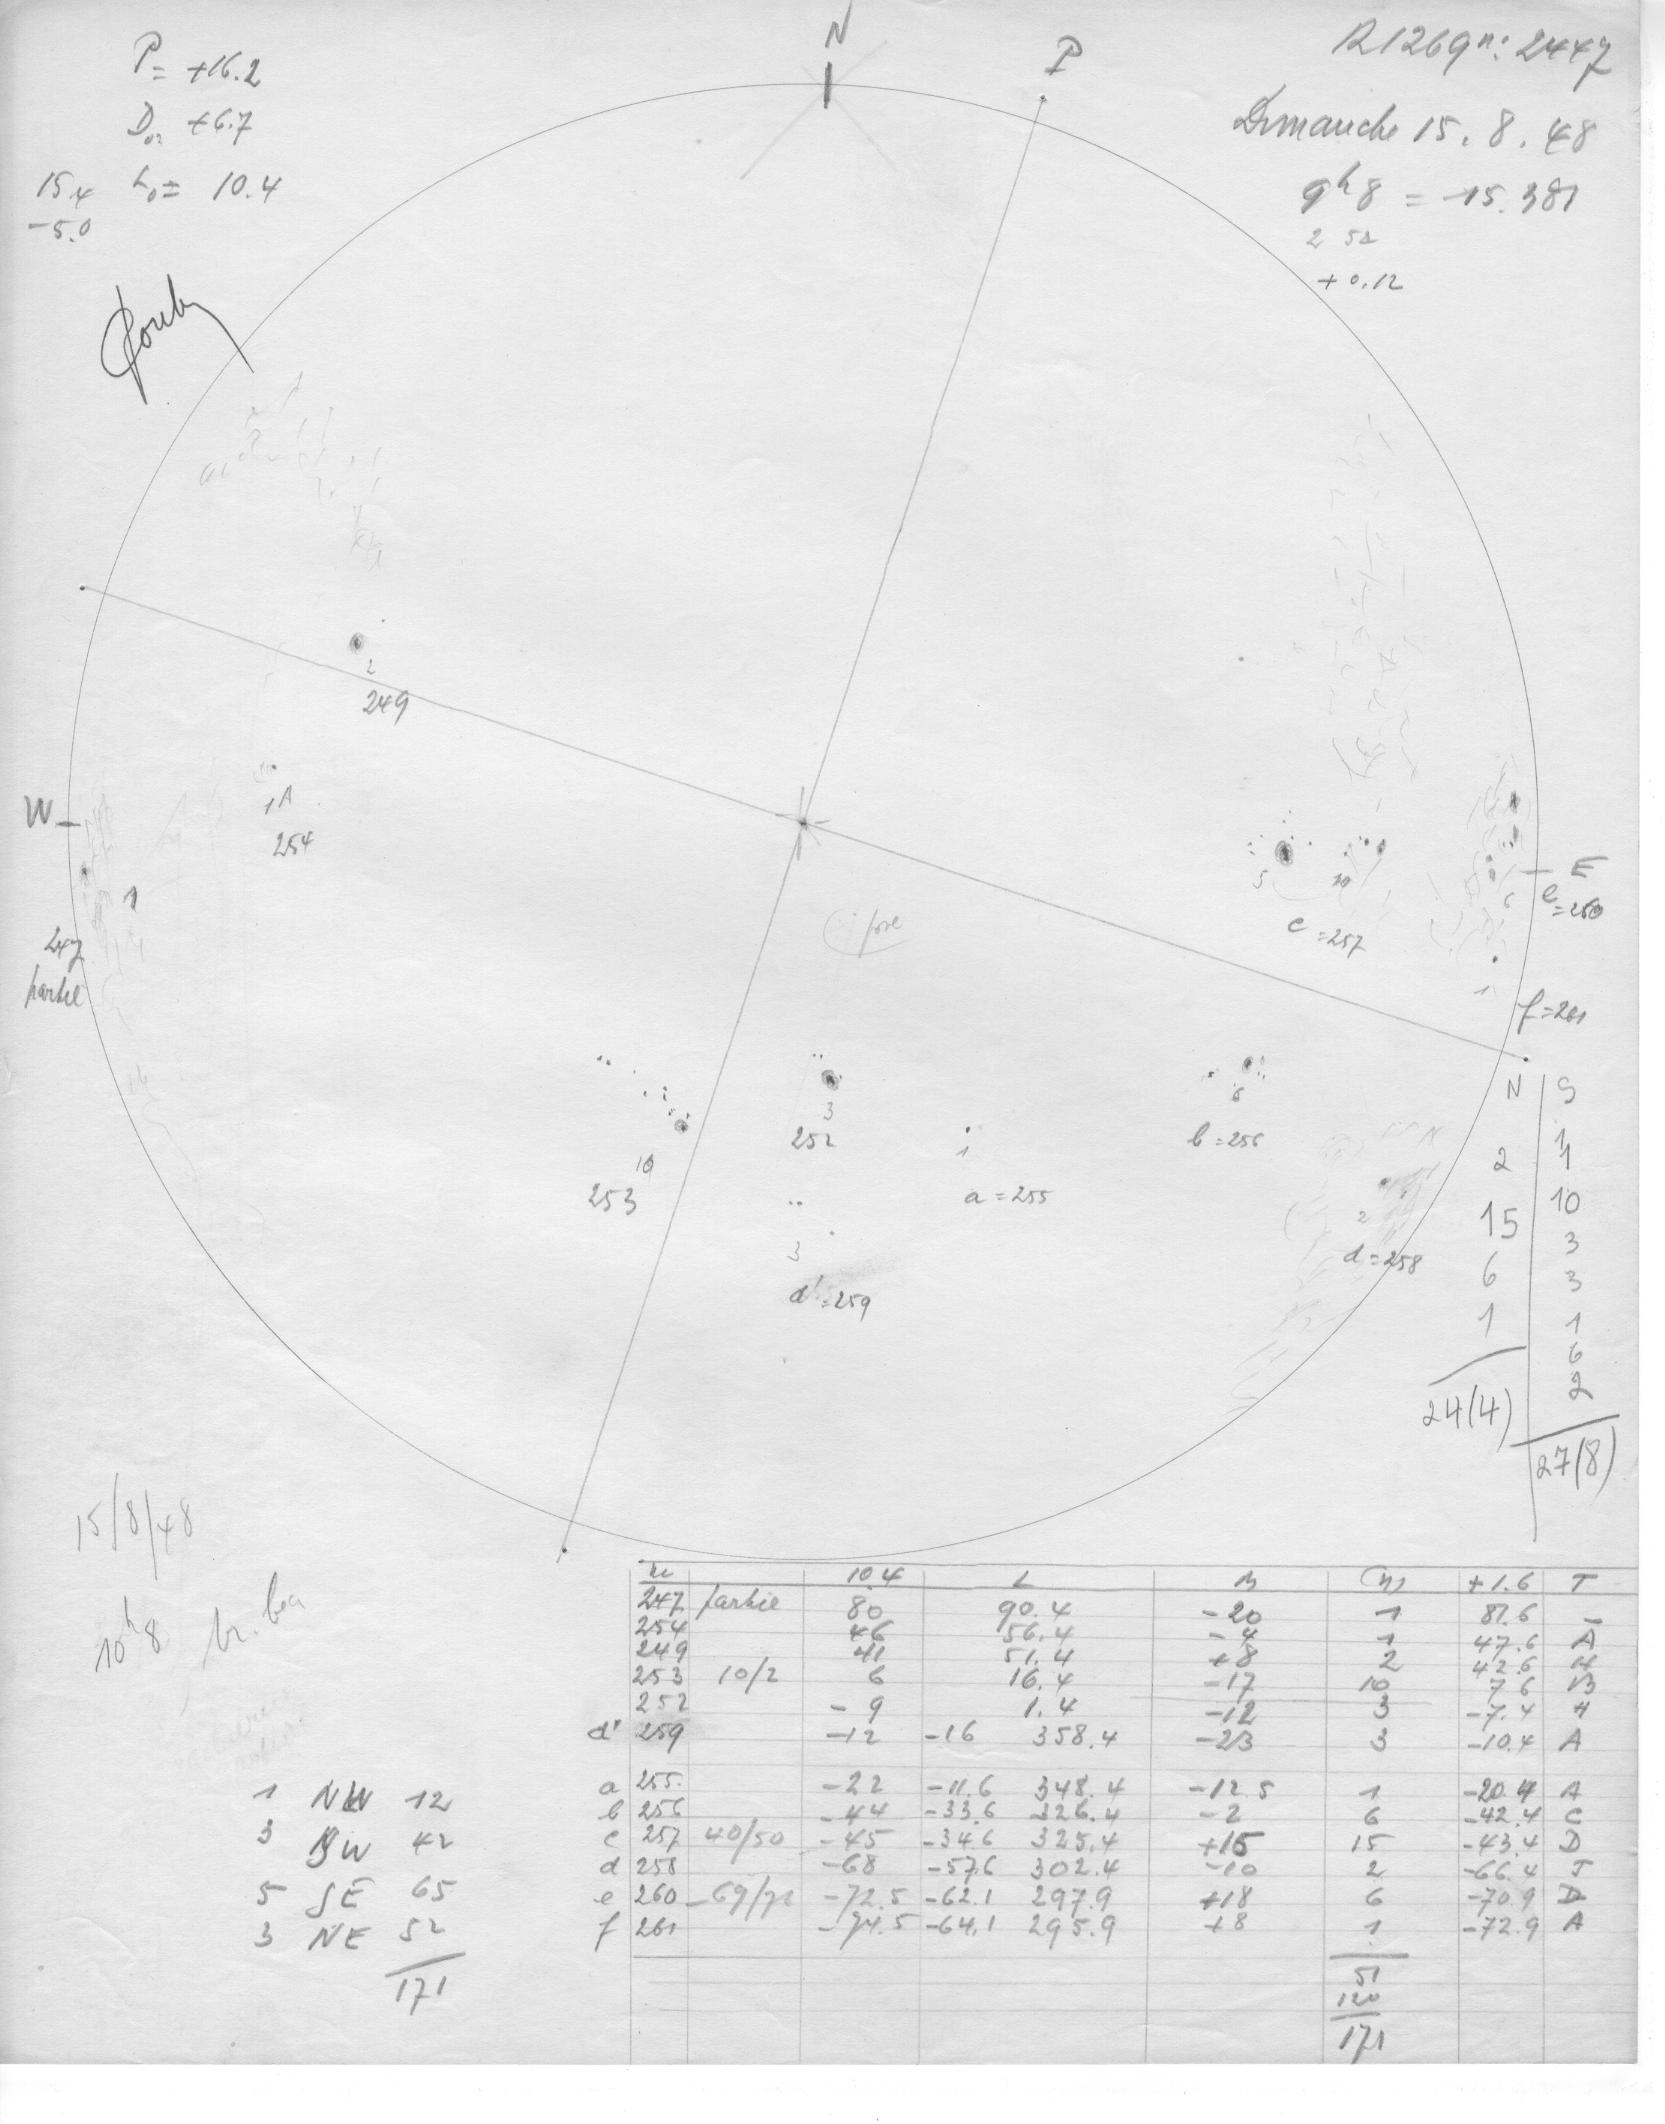 N
P
P= +16.2
D⊙= +6.7
15.4 L₀= 10.4
-5.0
R1269 n: 2447
Dimanche 15. 8. 48
9h8 = 15.381
2 52
+0.12
2
249
1A
254
W
1
247
partie
5
10
c=257
E
6
e=260
1
f=261
pore
3
252
10
253
1
a=255
6
b=256
2
d=258
3
d'=259
N S
1
2 1
15 10
6 3
1 3
1
6
2
24(4)
27(8)
15/8/48
10h8
1 NW 12
3 SW 42
5 SE 65
3 NE 52
171
10.4 L B (n) +1.6 T
247 partie 80 90.4 -20 1 81.6 -
254 46 56.4 -4 1 47.6 A
249 41 51.4 +8 2 42.6 H
253 10/2 6 16.4 -17 10 7.6 B
252 -9 1.4 -12 3 -7.4 H
d' 259 -12 -16 358.4 -23 3 -10.4 A
a 255. -22 -11.6 348.4 -12.5 1 -20.4 A
b 256 -44 -33.6 326.4 -2 6 -42.4 C
c 257 40/50 -45 -34.6 325.4 +15 15 -43.4 D
d 258 -68 -57.6 302.4 -10 2 -66.4 J
e 260 -72.5 -62.1 297.9 +18 6 -70.9 D
f 261 -74.5 -64.1 295.9 +8 1 -72.9 A
51
120
171